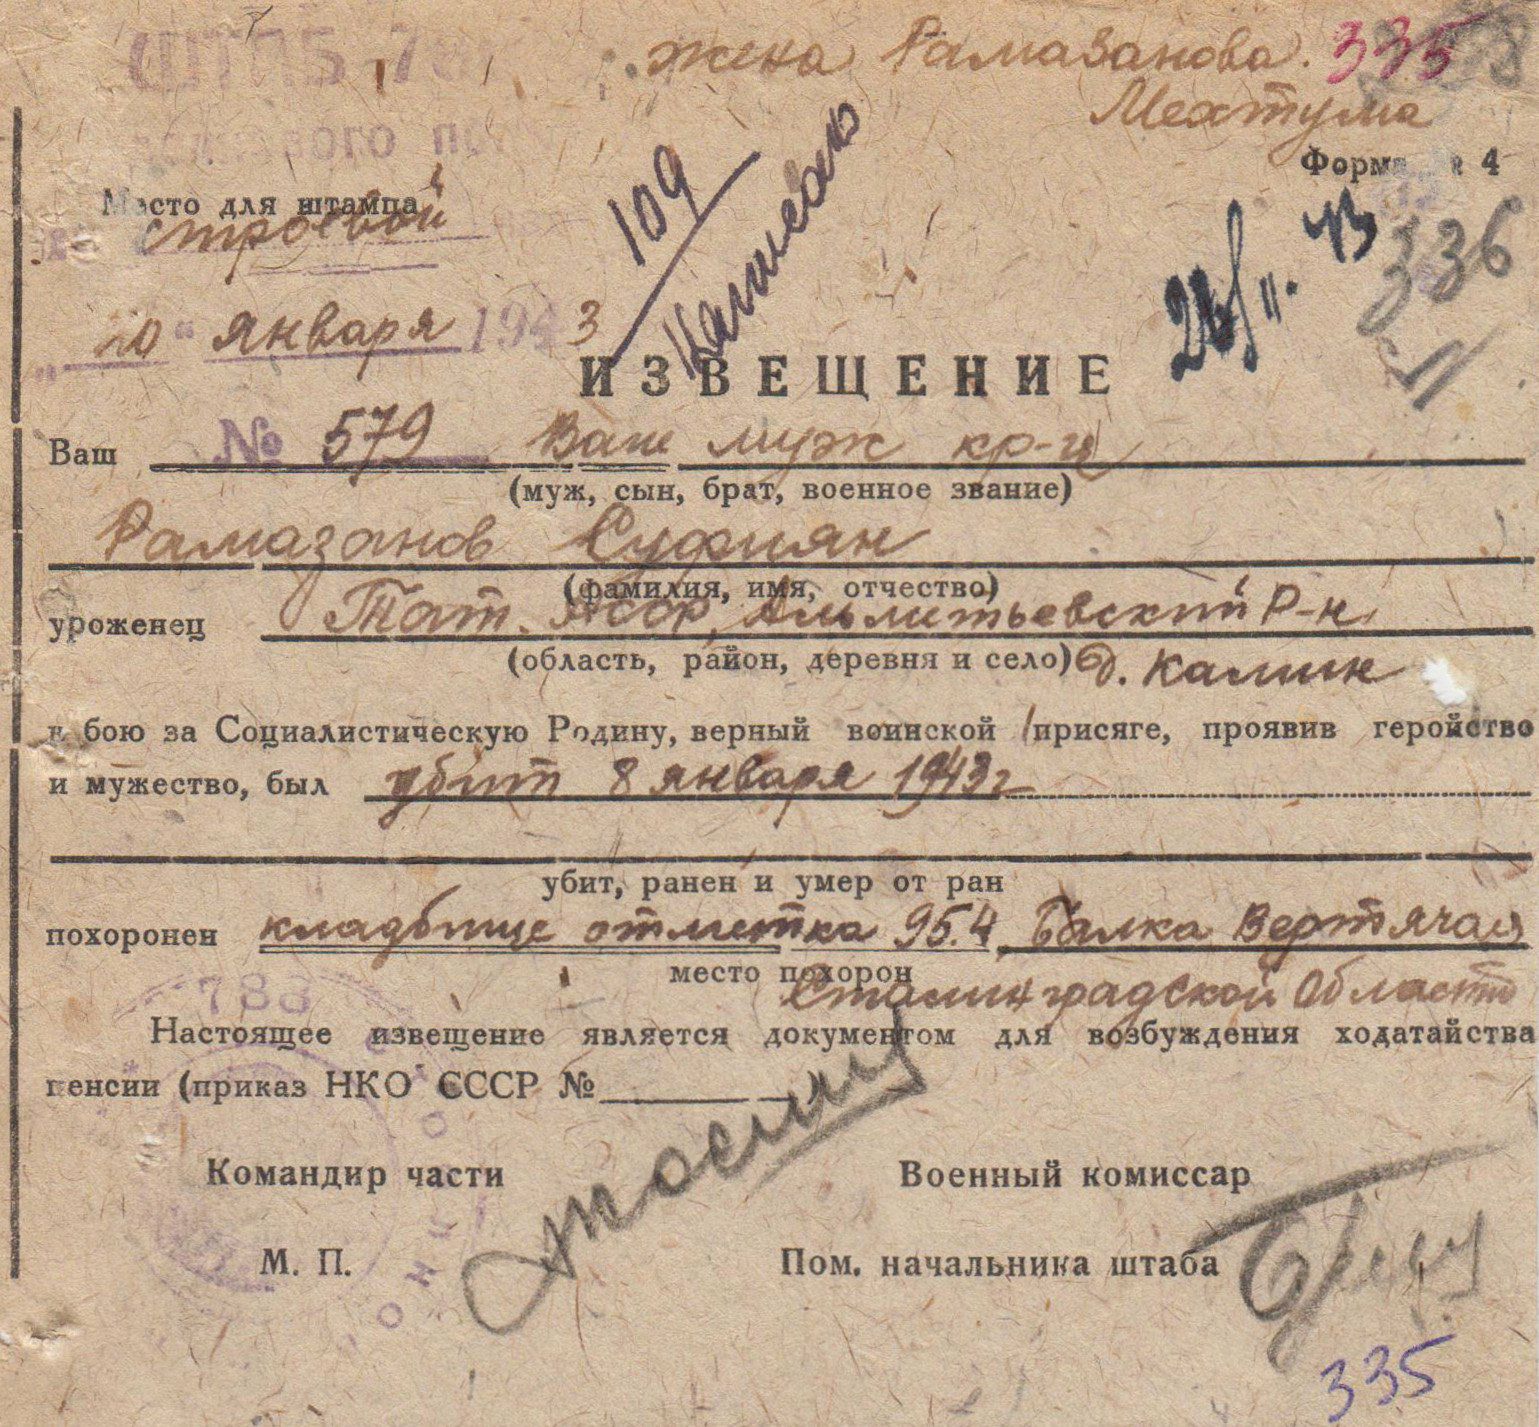 жена Рамазанова. 335
Мехтума
Форма № 4
Место для штампа
строевой
109
"10" января 1943
28/II. 43
336
ИЗВЕЩЕНИЕ
Ваш № 579 Ваш муж кр-ц
(муж, сын, брат, военное звание)
Рамазанов Суфиян
(фамилия, имя, отчество)
уроженец Тат. АССР, Альметьевский Р-н
(область, район, деревня и село) д. Калин
в бою за Социалистическую Родину, верный воинской присяге, проявив геройство
и мужество, был убит 8 января 1943 г
убит, ранен и умер от ран
похоронен кладбище отметка 95.4, Балка Вертячая
место похорон
Сталинградской Области
788
Настоящее извещение является документом для возбуждения ходатайства
пенсии (приказ НКО СССР №
Командир части Военный комиссар
М. П. Пом. начальника штаба
335